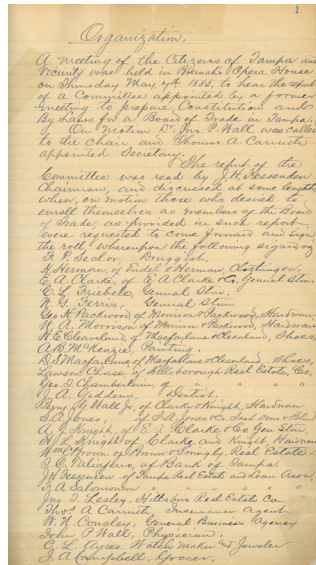 1
Organization.
A meeting of the Citizens of Tampa and
Vicinity was held in Branch's Opera House
on Thursday May 7th 1885, to hear the report
of a Committee appointed by a former
meeting to prepare Constitution and
By Laws for a Board of Trade in Tampa.
On Motion Dr. Jno. P. Wall was called
to the chair and Thomas A. Carruth
appointed Secretary.
The report of the
Committee was read by J. H. Fessenden
Chairman, and discussed at some length
when, on motion those who desired to
enroll themselves as members of the Board
of Trade, as provided in such report
were requested to come forward and sign
the roll, whereupon the following signed viz
Druggist.
H. Herman, of Endel & Herman, Clothing
E. A. Clarke, of E A Clarke & Co. General Store
General Store.
W. G. Ferris, General Store
Geo. H. Packwood of Morrison & Packwood, Hardware
Morrison of Morrison & Packwood, Hardware
H. E. Cleaveland, of Macfarlane & Cleaveland, Shoes,
McKenzie, Printing.
Macfarlane of Macfarlane & Cleaveland, Shoes,
Lawson Chase, of Hillsborough Real Estate, Co,
Geo. T. Chamberlain, of " " "
J. A. Giddens, Dentist.
Perry G. Wall Jr, of Clarke & Knight, Hardware
Jones, of
A. J. Knight, of E. A. Clarke & Co Gen Store,
W. L. Knight of Clarke and Knight, Hardware
Wm C Brown of Brown & Real Estate
T. C. Taliaferro, of Bank of Tampa.
J H Fessenden of Tampa Real Estate and Loan Assn,
A Salomonson " " " "
Jno. T. Lesley, Hillsboro Real Estate Co
Thos A Carruth, Insurance Agent
W. N. Conoley, General Business Agency
John P Wall, Physician.
C. L. Ayres, Watch Maker & Jeweler
J. A. Campbell, Grocer.